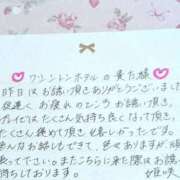 ♡ワシントンホテルの貴方様♡
昨日はお誘い頂きありがとうございました
夜遅く お疲れのところ お
プレイはたくさん気持ち良くなって頂き
たくさん褒めて頂けて嬉しかったです。
色んなお話もできて、色々ありますが、頑
張って下さい。またこちらに来た際はお誘い
待ちしております。 姫咲